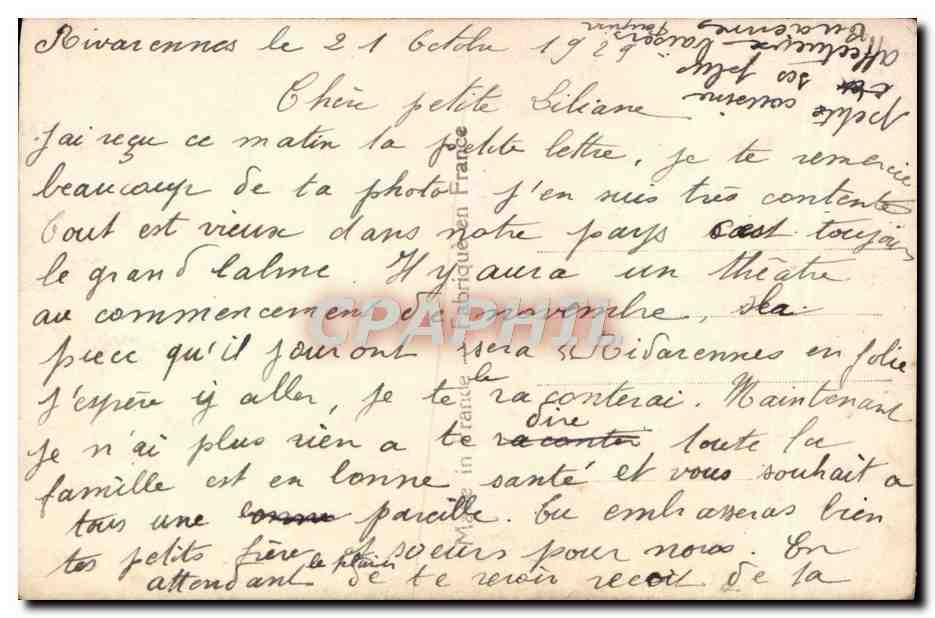 Rivarennes le 21 Octobre 1929
Chère petite Liliane
J'ai reçu ce matin ta petite lettre, je te remercie
beaucoup de ta photo j'en suis très contente
Tout est vieux dans notre pays c'est toujours
le grand Calme. Il y aura un théâtre
au commencement de novembre, la
piece qu'il joueront sera « Rivarennes en folie
j'espère y aller, je te le raconterai. Maintenant
je n'ai plus rien a te raconter dire toute la
famille est en bonne santé et vous souhait a
tous une bonne pareille. Tu embrasseras bien
tes petits frère et soeurs pour nous. En
attendant le plaisir de te revoir recoit de ta
petite cousine
ses plus
affectueux baisers
Made in France - Fabriqué en France
CPAPHIL